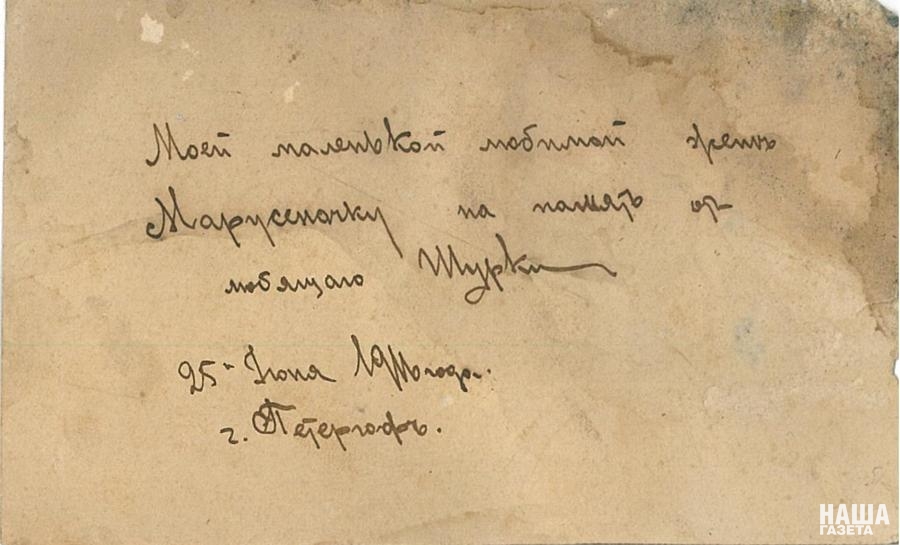 Моей маленькой любимой жены
Марусеночку на память от
любящаго Шурки
25го Iюня года.
г. Петергофъ.
НАША
ГАЗЕТА